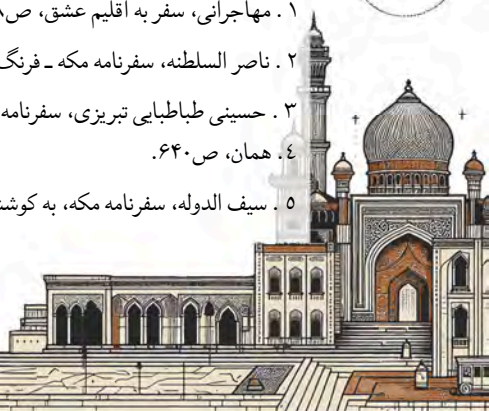 ۱ . مهاجرانی، سفر به اقلیم عشق، ص
۲ . ناصر السلطنه، سفرنامه مکه ـ فرنگ
۳ . حسینی طباطبایی تبریزی، سفرنامه
٤ . همان، ص۶۴۰.
٥ . سیف الدوله، سفرنامه مکه، به